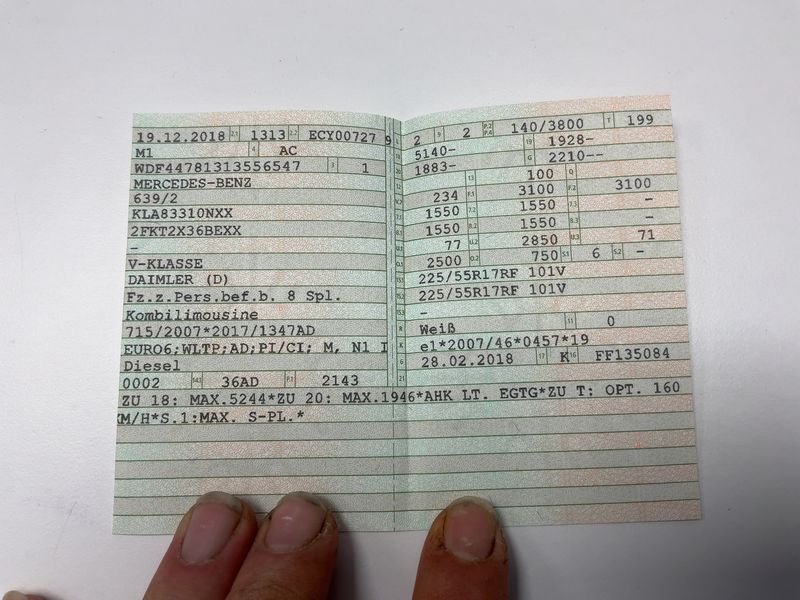 19.12.2018 2.1 1313 2.2 ECY00727 9
M1 4 AC
WDF44781313556547 3 1
MERCEDES-BENZ
639/2
KLA83310NXX
2FKT2X36BEXX
–
V-KLASSE
DAIMLER (D)
Fz.z.Pers.bef.b. 8 Spl.
Kombilimousine
715/2007*2017/1347AD
EURO6;WLTP;AD;PI/CI; M, N1 I
Diesel
0002 36AD P.1 2143
2 9 2 P.2 P.4 140/3800 T 199
5140- 19 1928-
1883- G 2210--
13 100 Q
234 F.1 3100 F.2 3100
1550 7.2 1550 7.3 -
1550 8.2 1550 8.3 -
77 U.2 2850 U.3 71
2500 O.2 750 S.1 6 S.2 -
225/55R17RF 101V
225/55R17RF 101V
-
R Weiß 11 0
K e1*2007/46*0457*19
6 28.02.2018 17 K 16 FF135084
21
ZU 18: MAX.5244*ZU 20: MAX.1946*AHK LT. EGTG*ZU T: OPT. 160
KM/H*S.1:MAX. S-PL.*